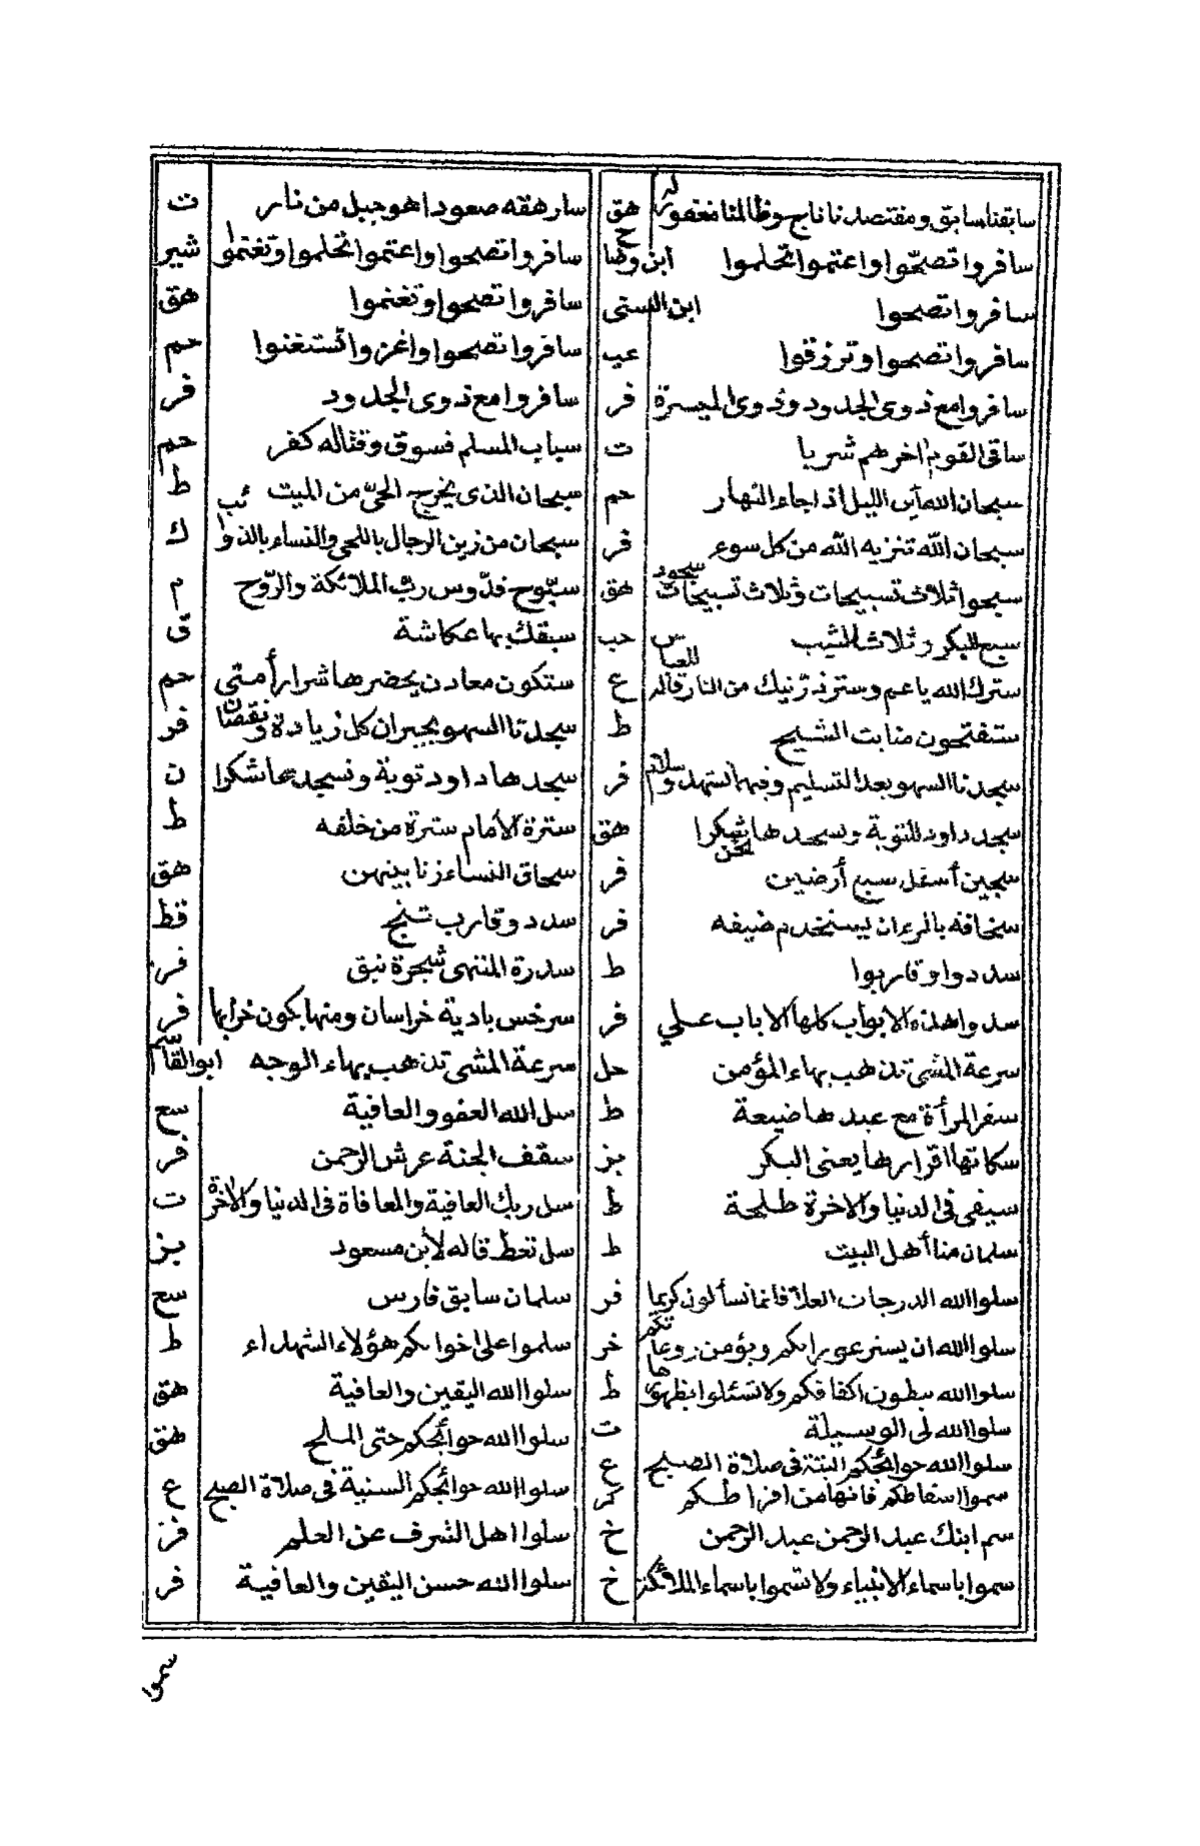 سابقنا سابق ومقتصدنا ناج وظالمنا مغفور له هق
سافروا تصحوا واعتموا تحلموا ابن وضاح
سافروا تصحوا ابن السنى
سافروا تصحوا وترزقوا عب
سافروا مع ذوى الجدود وذوى الميسرة فر
ساقى القوم اخرهم شربا ت
سبحان الله أين الليل اذا جاء النهار حم
سبحان الله تنزيه الله من كل سوء فر
سبحوا ثلاث تسبيحات وثلاث تسبيحات سجود هق
سبع للبكر وثلاث للثيب حب
سترك الله يا عم وستر ذريتك من النار قاله للعباس ع
ستفتحون منابت الشيح ط
سجدتا السهو بعد التسليم وفيهما تشهد وسلام فر
سجد داود للتوبة ونسجدها نحن شكرا هق
سجين أسفل سبع أرضين فر
سخافة بالمرء ان يستخدم ضيفه فر
سددوا وقاربوا ط
سدوا هذه الابواب كلها الا باب علي فر
سرعة المشى تذهب بهاء المؤمن حل
سفر المرأة مع عبدها ضيعة ط
سكاتها اقرارها يعنى البكر بز
سيفى فى الدنيا والاخرة طلحة ط
سلمان منا أهل البيت ط
سلوا الله الدرجات العلا فانما تسألون كريما فر
سلوا الله ان يستر عوراتكم ويؤمن روعاتكم خر
سلوا الله ببطون اكفافكم ولا تسئلوا بظهورها ط
سلوا الله لى الوسيلة ت
سلوا الله حوائجكم البتة فى صلاة الصبح ع
سموا اسقاطكم فانها من افراطكم كر
سم ابنك عبد الرحمن عبد الرحمن خ
سموا باسماء الانبياء ولا تسموا باسماء الملائكة خ
سارهقه صعودا هو جبل من نار ت
سافروا تصحوا واعتموا تحلموا وتغنموا شير
سافروا تصحوا وتغنموا هق
سافروا تصحوا واغزوا تستغنوا حم
سافروا مع ذوى الجدود فر
سباب المسلم فسوق وقتاله كفر حم
سبحان الذى يخرج الحى من الميت ط
سبحان من زين الرجال باللحى والنساء بالذوائب ك
سبوح قدوس رب الملائكة والروح م
سبقك بها عكاشة ق
ستكون معادن يحضرها شرار أمتى حم
سجدتا السهو يجبران كل زيادة ونقصان فر
سجدها داود توبة ونسجدها شكرا ن
سترة الامام سترة من خلفه ط
سحاق النساء زنا بينهن هق
سدد وقارب تنج قط
سدرة المنتهى شجرة نبق فر
سرخس بادية خراسان ومنها يكون خرابها فر
سرعة المشى تذهب بهاء الوجه ابو القاسم
سل الله العفو والعافية سع
سقف الجنة عرش الرحمن فر
سل ربك العافية والمعافاة فى الدنيا والاخرة ت
سل تعط قاله لأبن مسعود بز
سلمان سابق فارس سع
سلموا على اخوانكم هؤلاء الشهداء ط
سلوا الله اليقين والعافية هق
سلوا الله حوائجكم حتى الملح هق
سلوا الله حوائجكم السنية فى صلاة الصبح ع
سلوا اهل الشرف عن العلم فر
سلوا الله حسن اليقين والعافية فر
سموا